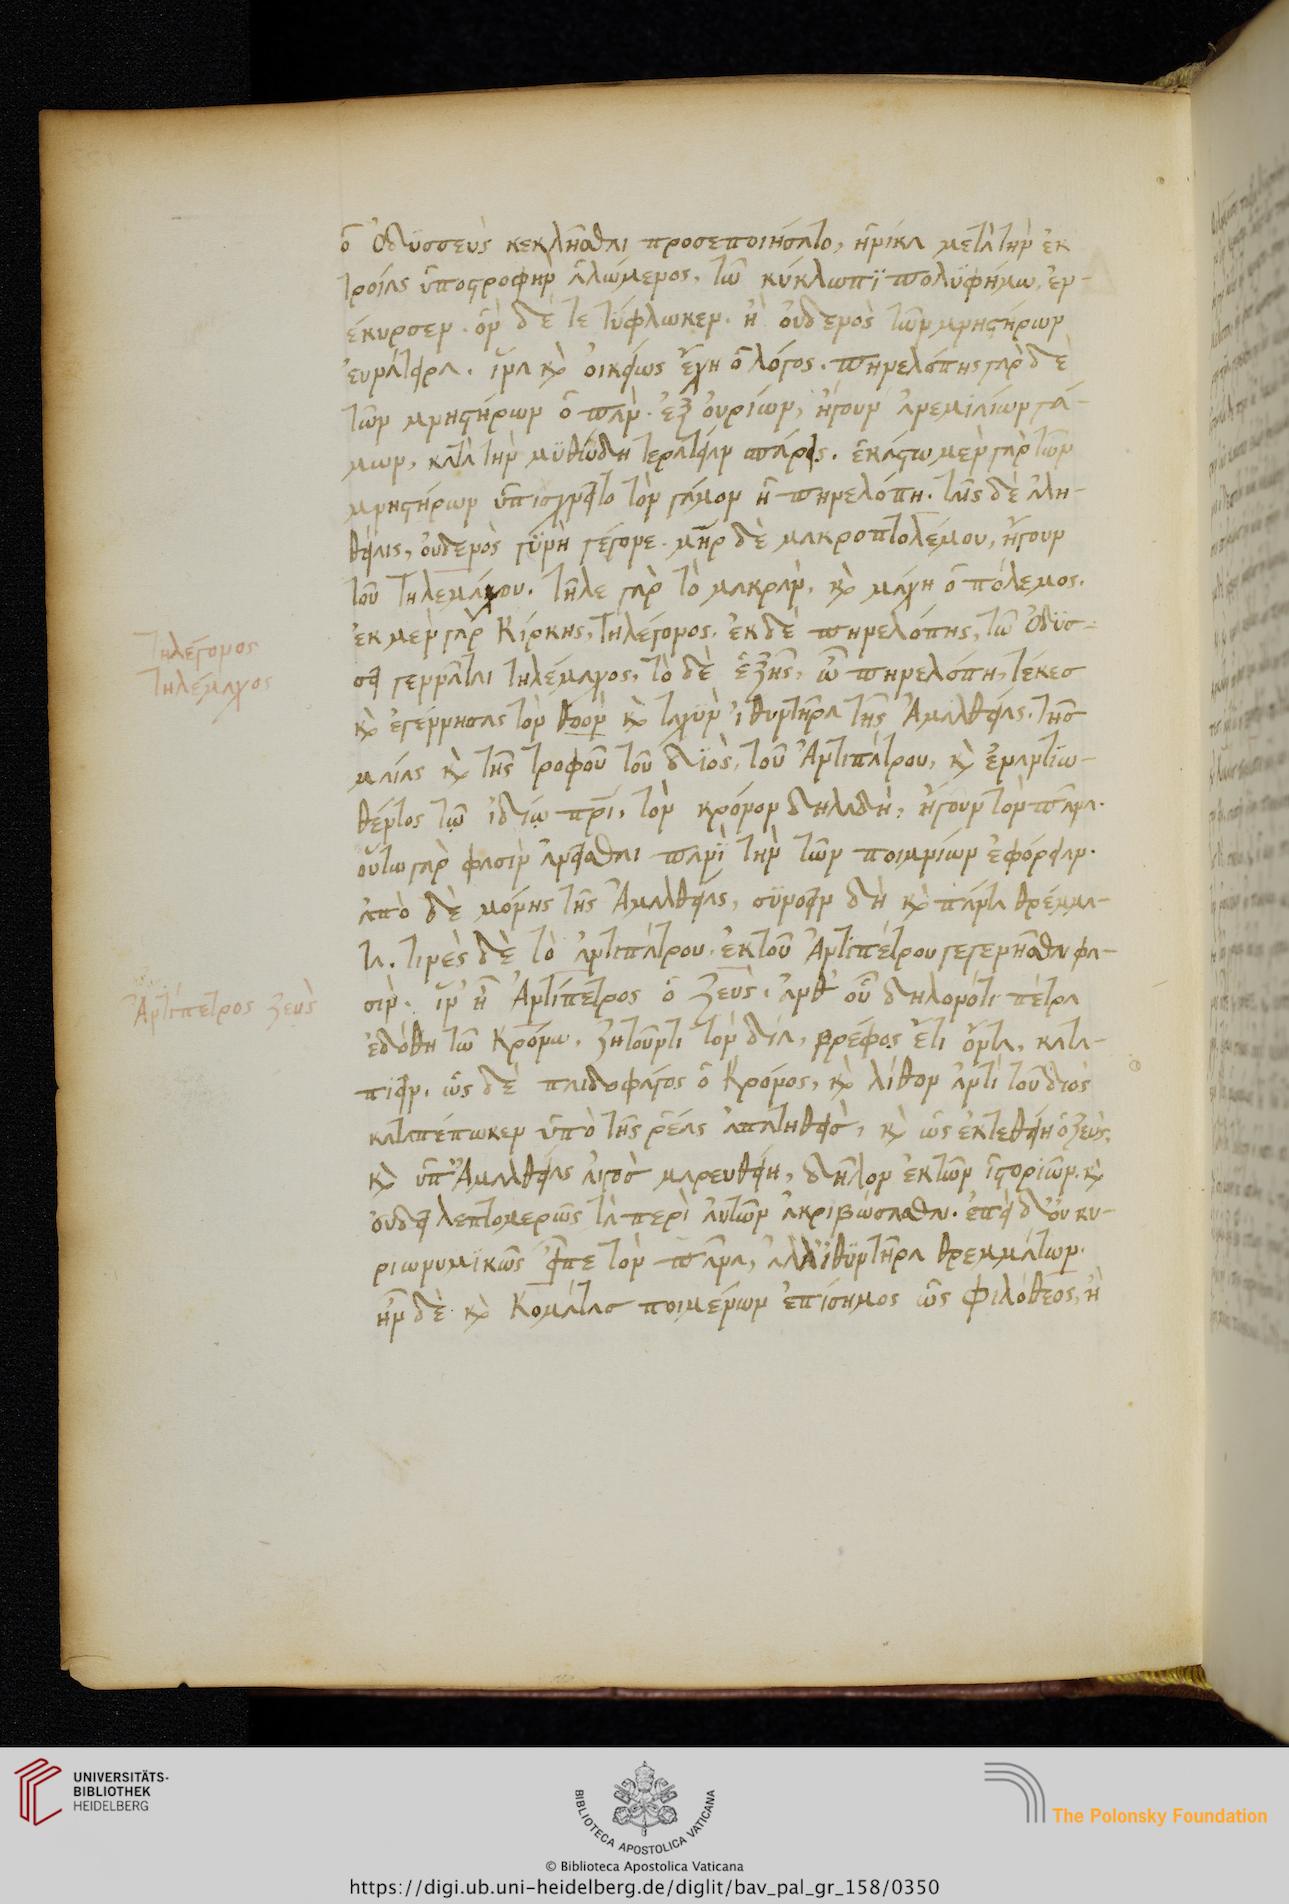 ὁ Ὀδυσσεὺς κεκλῆσθαι προσεποιήσατο, ἡνίκα μετὰ τὴν ἐκ
τροίας ὑποστροφὴν ἁλώμενος, τῶ κύκλωπι πολυφήμω, ἐν-
έκυρσεν. ὃν δέ τε τύφλωκεν. ἢ οὐδενὸς τῶν μνηστήρων
εὐνάτειρα. ἵνα κὶ οἰκείως ἔχη ὁ λόγος. πηνελόπης γὰρ δὲ
τῶν μνηστήρων ὁ πὰν. ἐξ οὐρίων, ἤγουν ἀνεμιαίων γά-
μων, κατὰ τὴν μυθώδη τερατείαν πάρεις. ἑκάστω μὲν γὰρ τῶν
μνηστήρων ὑπισχνεῖτο τὸν γάμον ἡ πηνελόπη. ταῖς δὲ ἀλη-
θείαις, οὐδενὸς γυνὴ γέγονε. μῆρ δὲ μακροπτολέμου, ἤγουν
τοῦ Τηλεμάχου. τῆλε γὰρ τὸ μακρὰν, κὶ μάχη ὁ πόλεμος.
ἐκ μὲν γὰρ Κίρκης, Τηλέγονος. ἐκ δὲ πηνελόπης, τῶ Ὀδυσ-
σεῖ γεννᾶται τηλέμαχος, τὸ δὲ ἑξῆς, ὦ πηνελόπη, τέκες
κὶ ἐγέννησας τὸν θοὸν κὶ ταχὺν ἰθυντῆρα τῆς Ἀμαλθείας. τῆς
μαίας κὶ τῆς τροφοῦ τοῦ διὸς, τοῦ Ἀντιπάτρου, κὶ ἐναντιω-
θέντος τῷ ἰδίῳ πρι, τὸν κρόνον δηλαδὴ, ἤγουν τὸν πᾶνα.
οὕτω γὰρ φασὶν ἀνεῖσθαι πανὶ τὴν τῶν ποιμνίων ἐφόρειαν.
ἀπὸ δὲ μόνης τῆς Ἀμαλθείας, συνοεῖν δὴ κὶ πάντα θρέμμα-
τα. τινὲς δὲ τὸ ἀντιπάτρου, ἐκ τοῦ Ἀντιπέτρου γεγενῆσθαι φα-
σὶν. ἵν' ἦ Ἀντίπετρος ὁ Ζεὺς, ἀνθ' οὗ δηλονότι πέτρα
ἐδόθη τῶ Κρόνω, ζητοῦντι τὸν δία, βρέφος ἔτι ὄντα, κατα-
πιεῖν. ὡς δὲ παιδοφάγος ὁ Κρόνος, κὶ λίθον ἀντὶ τοῦ διὸς
καταπέπωκεν ὑπὸ τῆς ῥέας ἀπατηθεὶς, κὶ ὡς ἐκτεθείη ὁ Ζεὺς,
κὶ ὑπ' Ἀμαλθείας αἰγὸς μαιευθείη, δῆλον ἐκ τῶν ἱστοριῶν. κὶ
οὐ δεῖ λεπτομερῶς τὰ περὶ αὐτῶν ἀκριβώσασθαι. ἐπεὶ δ' οὐ κυ-
ριωνυμικῶς εἶπε τὸν πᾶνα, ἀλλ' ἰθυντῆρα θρεμμάτων.
ἦν δὲ κὶ Κομάτας ποιμένων ἐπίσημος ὡς Φιλόθεος, ἢ
Τηλέγονος
Τηλέμαχος
Ἀντίπετρος Ζεὺς
UNIVERSITÄTS-
BIBLIOTHEK
HEIDELBERG
BIBLIOTECA APOSTOLICA VATICANA
The Polonsky Foundation
© Biblioteca Apostolica Vaticana
https://digi.ub.uni-heidelberg.de/diglit/bav_pal_gr_158/0350